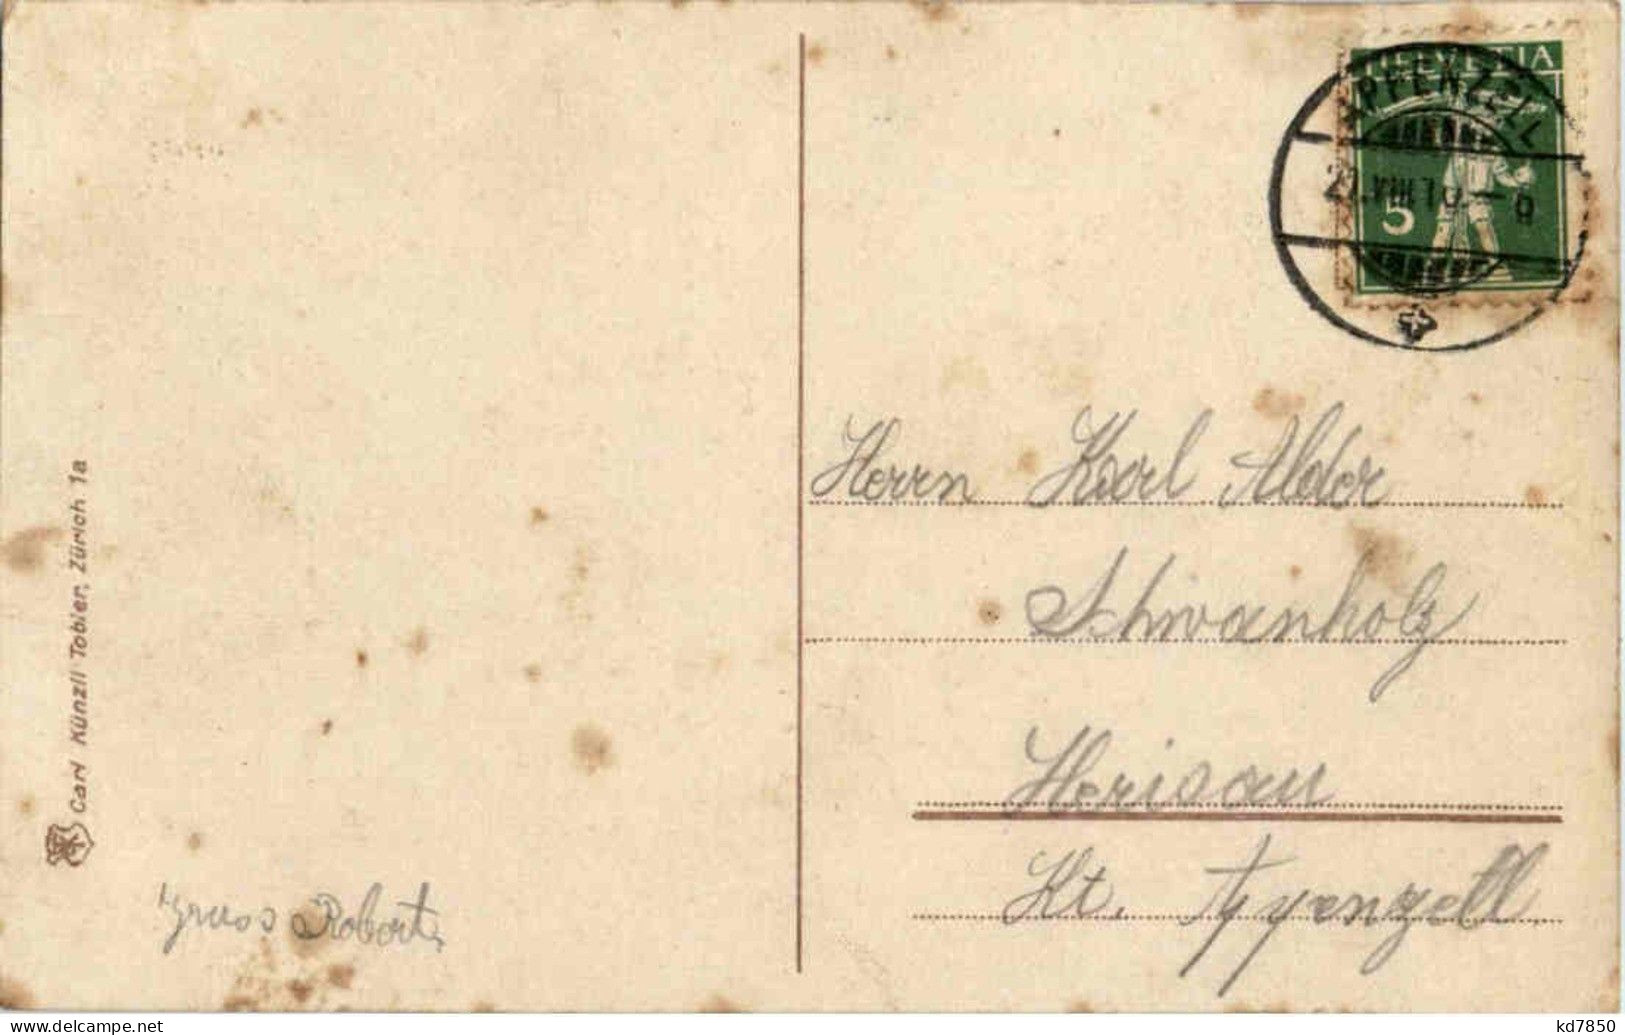 HELVETIA
APPENZELL
5
Herrn Karl Alder
Schwanholz
Herisau
Kt. Appenzell
Carl Künzli Tobler, Zürich 1a
Gruss Robert
kd7850